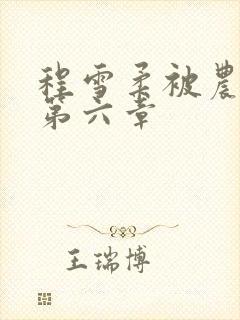 程雪柔被農
第六章
王瑞博